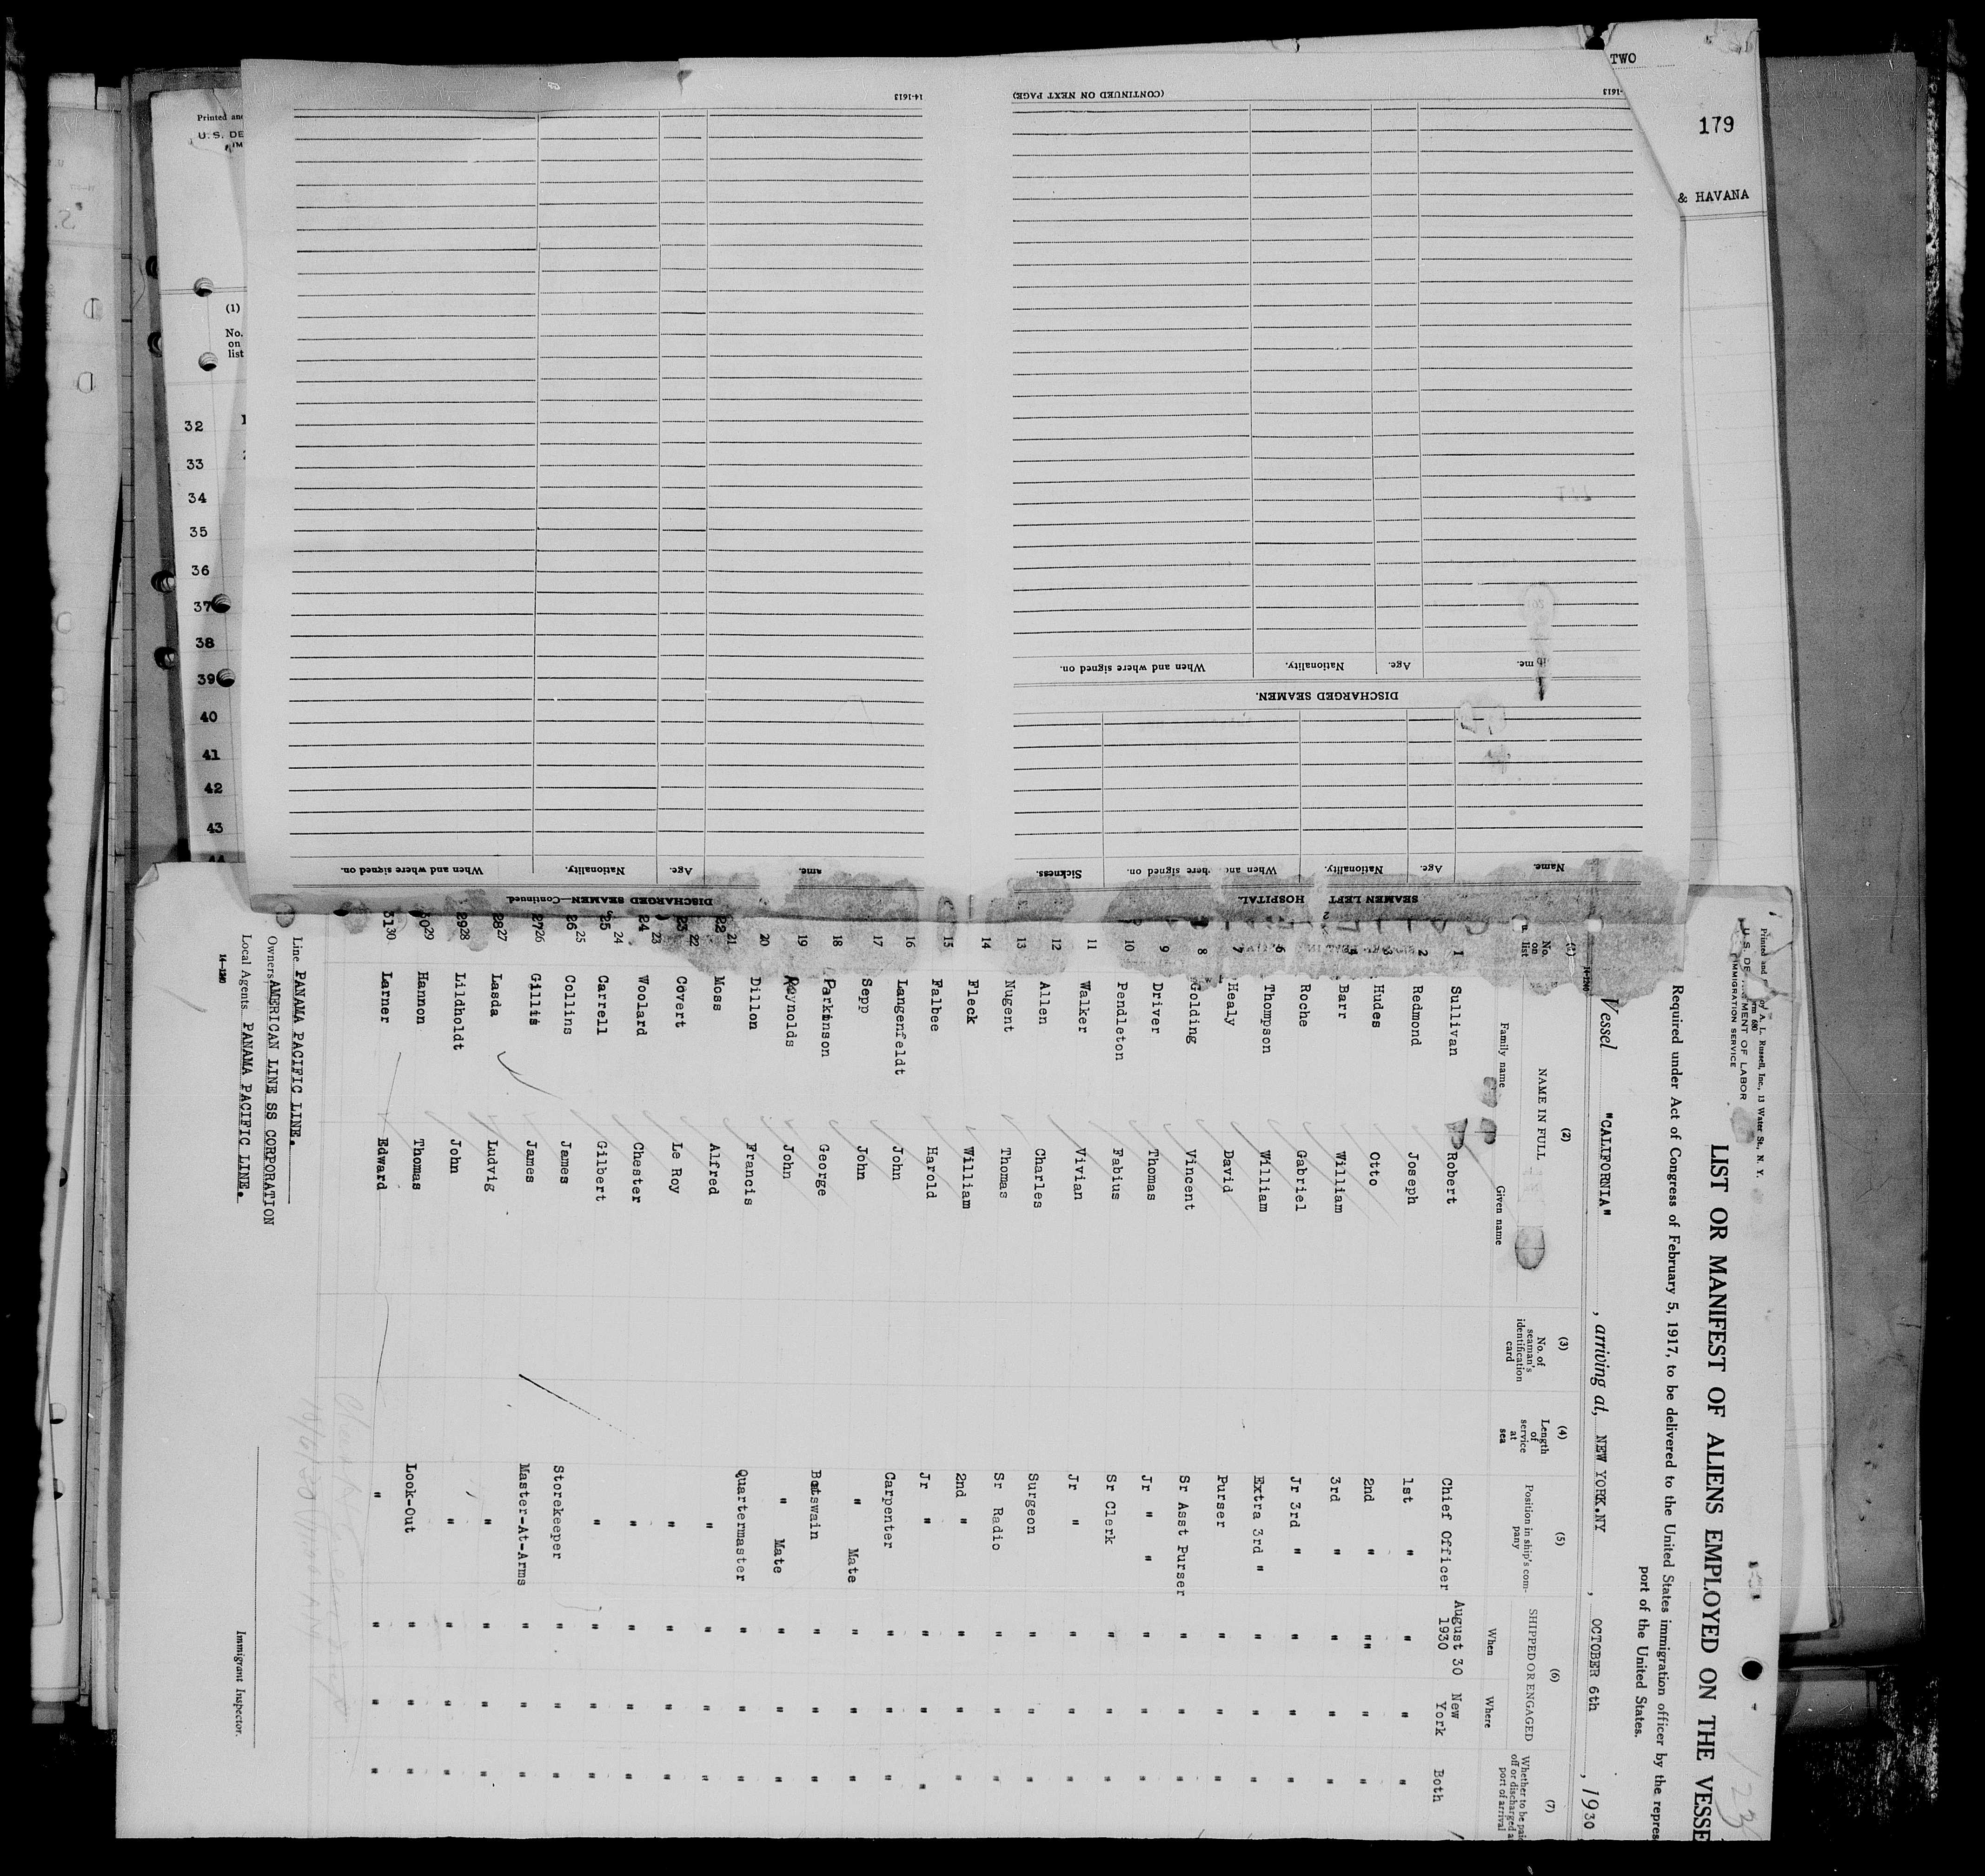 TWO
179
& HAVANA
Printed and
U. S. DE
(1)
No.
on
list
32
33
34
35
36
37
38
39
40
41
42
43
14-1613
(CONTINUED ON NEXT PAGE)
When and where signed on. Nationality. Age.
DISCHARGED SEAMEN.
Name. Age. Nationality. When and where signed on. Sickness.
SEAMEN LEFT HOSPITAL
When and where signed on. Nationality. Age.
DISCHARGED SEAMEN—Continued.
Printed and A. L. Russell, Inc., 13 Water St., N. Y.
Form 680
U. S. DE MENT OF LABOR
IMMIGRATION SERVICE
LIST OR MANIFEST OF ALIENS EMPLOYED ON THE VESSE
123
Required under Act of Congress of February 5, 1917, to be delivered to the United States immigration officer by the repres
port of the United States.
Vessel "CALIFORNIA", arriving at, NEW YORK.NY, OCTOBER 6th, 1930
14-1240
(1) (2) (3) (4) (5) (6) (7)
No. on list NAME IN FULL No. of seaman's identification card Length of service at sea Position in ship's company SHIPPED OR ENGAGED Whether to be paid off or discharged at port of arrival
Family name Given name When Where
1 Sullivan Robert Chief Officer August 30 1930 New York Both
2 Redmond Joseph 1st " " " "
3 Hudes Otto 2nd " "" " "
4 Barr William 3rd " " " "
Roche Gabriel Jr 3rd " " " "
6 Thompson William Extra 3rd " " " "
7 Healy David Purser " " "
8 Golding Vincent Sr Asst Purser " " "
9 Driver Thomas Jr " " " " "
10 Pendleton Fabius Sr Clerk " " "
11 Walker Vivian Jr " " " "
12 Allen Charles Surgeon " " "
13 Nugent Thomas Sr Radio " " "
14 Fleck William 2nd " " " "
15 Falbee Harold Jr " " " "
16 Langenfeldt John Carpenter " " "
17 Sepp John " Mate " " "
18 Parkinson George Boatswain " " "
19 Reynolds John " Mate " " "
20 Dillon Francis Quartermaster " " "
22 21 Moss Alfred " " " "
23 22 Covert Le Roy " " " "
24 23 Woolard Chester " " " "
25 24 Carrell Gilbert " " " "
26 25 Collins James Storekeeper " " "
27 26 Gillis James Master-At-Arms " " "
28 27 Lasda Ludvig " " " "
29 28 Lildholdt John " " " "
30 29 Hannon Thomas Look-Out " " "
31 30 Larner Edward " " " "
Line PANAMA PACIFIC LINE.
Owners AMERICAN LINE SS CORPORATION
Local Agents PANAMA PACIFIC LINE.
Immigrant Inspector.
14-1240